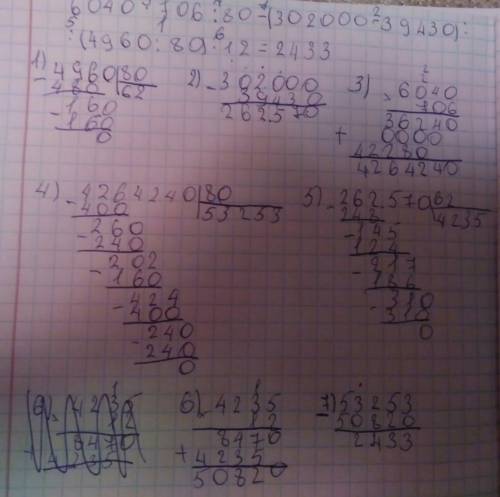 6040·706:80-(302000-39430):
:(4960:80)·12=2433
1) 4960|80
- 480 62
160
- 160
0
2) - 302000
39430
262570
3) × 6040
706
36240
+ 0000
42280
4264240
4) - 4264240|80
400 53253
- 260
240
- 202
160
- 424
400
- 240
240
0
5) - 262570|62
248 4235
- 145
124
- 217
186
- 310
310
0
6) 4235
12
8470
+ 4235
50820
7) - 53253
50820
2433